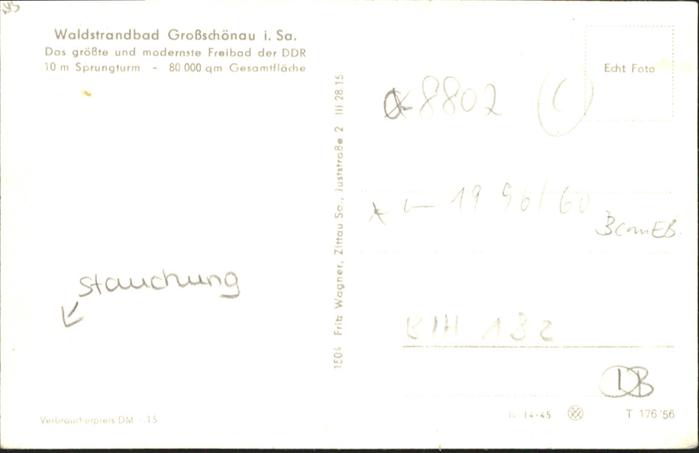 Waldstrandbad Großschönau i. Sa.
Das größte und modernste Freibad der DDR
10 m Sprungturm - 80 000 qm Gesamtfläche
Echt Foto
8802
1996/60
Stauchung
1504 Fritz Wagner, Zittau Sa., Juststraße 2 III 28 15
KIH 132
DB
Verbraucherpreis DM -.15
14-45
T 176/56